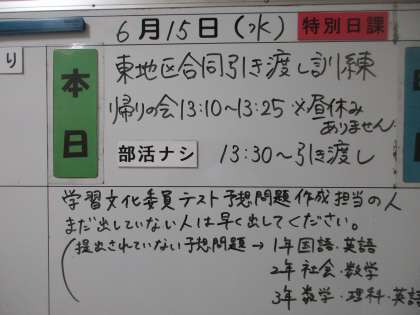 6月15日(水) 特別日課
り
本日
東地区合同引き渡し訓練
帰りの会13:10～13:25 ※昼休み
ありません
部活ナシ 13:30～引き渡し
学習文化委員テスト予想問題作成担当の人
まだ出していない人は早く出してください。
(提出されていない予想問題→1年国語・英語
2年社会・数学
3年数学・理科・英語